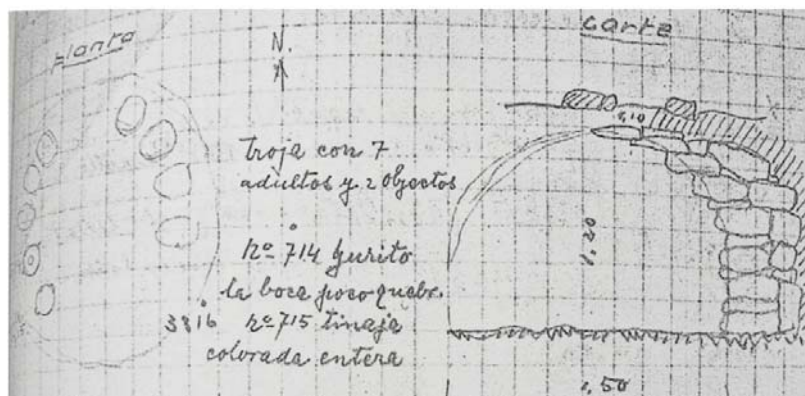 Planta
N.
Corte
1,10
troja con 7
adultos y 2 objectos
nº 714 yurito
la boca poco quebr.
3816
nº 715 tinaja
colorada entera
1,20
1,50